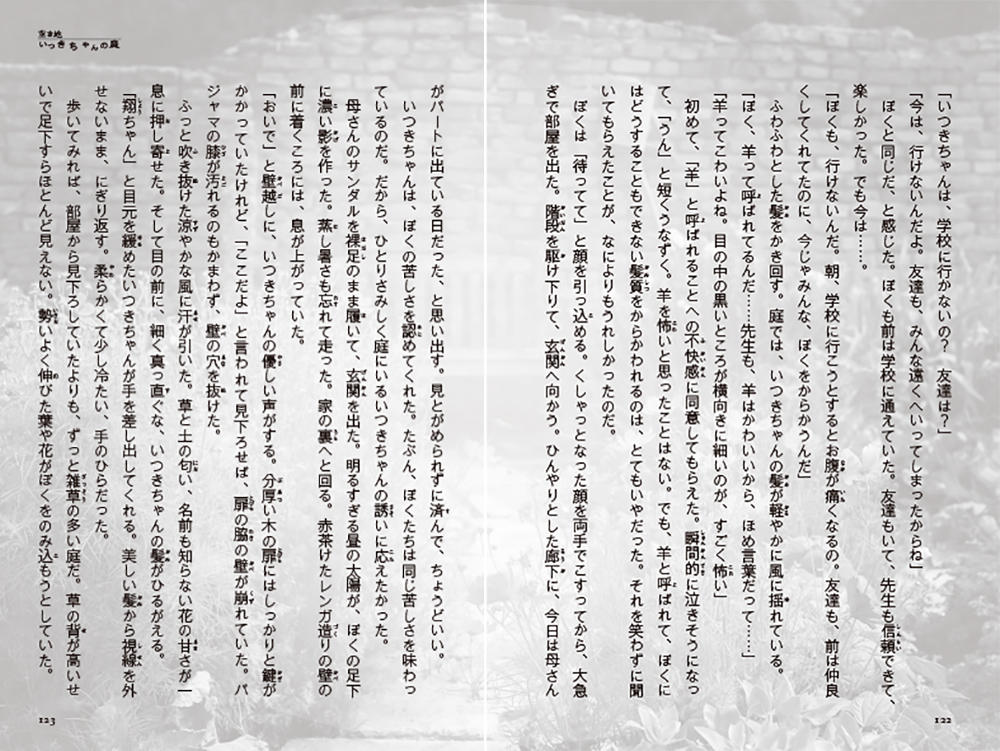 「いつきちゃんは、学校に行かないの？　友達は？」
「今は、行けないんだよ。友達も、みんな遠くへいってしまったからね」
ぼくと同じだ、と感じた。ぼくも前は学校に通えていた。友達もいて、先生も信頼できて、
楽しかった。でも今は……。
「ぼくも、行けないんだ。朝、学校に行こうとするとお腹が痛くなるの。友達も、前は仲良
くしてくれてたのに、今じゃみんな、ぼくをからかうんだ」
ふわふわとした髪をかき回す。庭では、いつきちゃんの髪が軽やかに風に揺れている。
「ぼく、羊って呼ばれてるんだ……先生も、羊はかわいいから、ほめ言葉だって……」
「羊ってこわいよね。目の中の黒いところが横向きに細いのが、すごく怖い」
初めて、「羊」と呼ばれることへの不快感に同意してもらえた。瞬間的に泣きそうになっ
て、「うん」と短くうなずく。羊を怖いと思ったことはない。でも、羊と呼ばれて、ぼくに
はどうすることもできない髪質をからかわれるのは、とてもいやだった。それを笑わずに聞
いてもらえたことが、なによりもうれしかったのだ。
ぼくは「待ってて」と顔を引っ込める。くしゃっとなった顔を両手でこすってから、大急
ぎで部屋を出た。階段を駆け下りて、玄関へ向かう。ひんやりとした廊下に、今日は母さん
122
空き地
いつきちゃんの庭
がパートに出ている日だった、と思い出す。見とがめられずに済んで、ちょうどいい。
いつきちゃんは、ぼくの苦しさを認めてくれた。たぶん、ぼくたちは同じ苦しさを味わっ
ているのだ。だから、ひとりさみしく庭にいるいつきちゃんの誘いに応えたかった。
母さんのサンダルを裸足のまま履いて、玄関を出た。明るすぎる昼の太陽が、ぼくの足下
に濃い影を作った。蒸し暑さも忘れて走った。家の裏へと回る。赤茶けたレンガ造りの壁の
前に着くころには、息が上がっていた。
「おいで」と壁越しに、いつきちゃんの優しい声がする。分厚い木の扉にはしっかりと鍵が
かかっていたけれど、「ここだよ」と言われて見下ろせば、扉の脇の壁が崩れていた。パ
ジャマの膝が汚れるのもかまわず、壁の穴を抜けた。
ふっと吹き抜けた涼やかな風に汗が引いた。草と土の匂い、名前も知らない花の甘さが一
息に押し寄せた。そして目の前に、細く真っ直ぐな、いつきちゃんの髪がひるがえる。
「翔ちゃん」と目元を緩めたいつきちゃんが手を差し出してくれる。美しい髪から視線を外
せないまま、にぎり返す。柔らかくて少し冷たい、手のひらだった。
歩いてみれば、部屋から見下ろしていたよりも、ずっと雑草の多い庭だ。草の背が高いせ
いで足下すらほとんど見えない。勢いよく伸びた葉や花がぼくをのみ込もうとしていた。
123